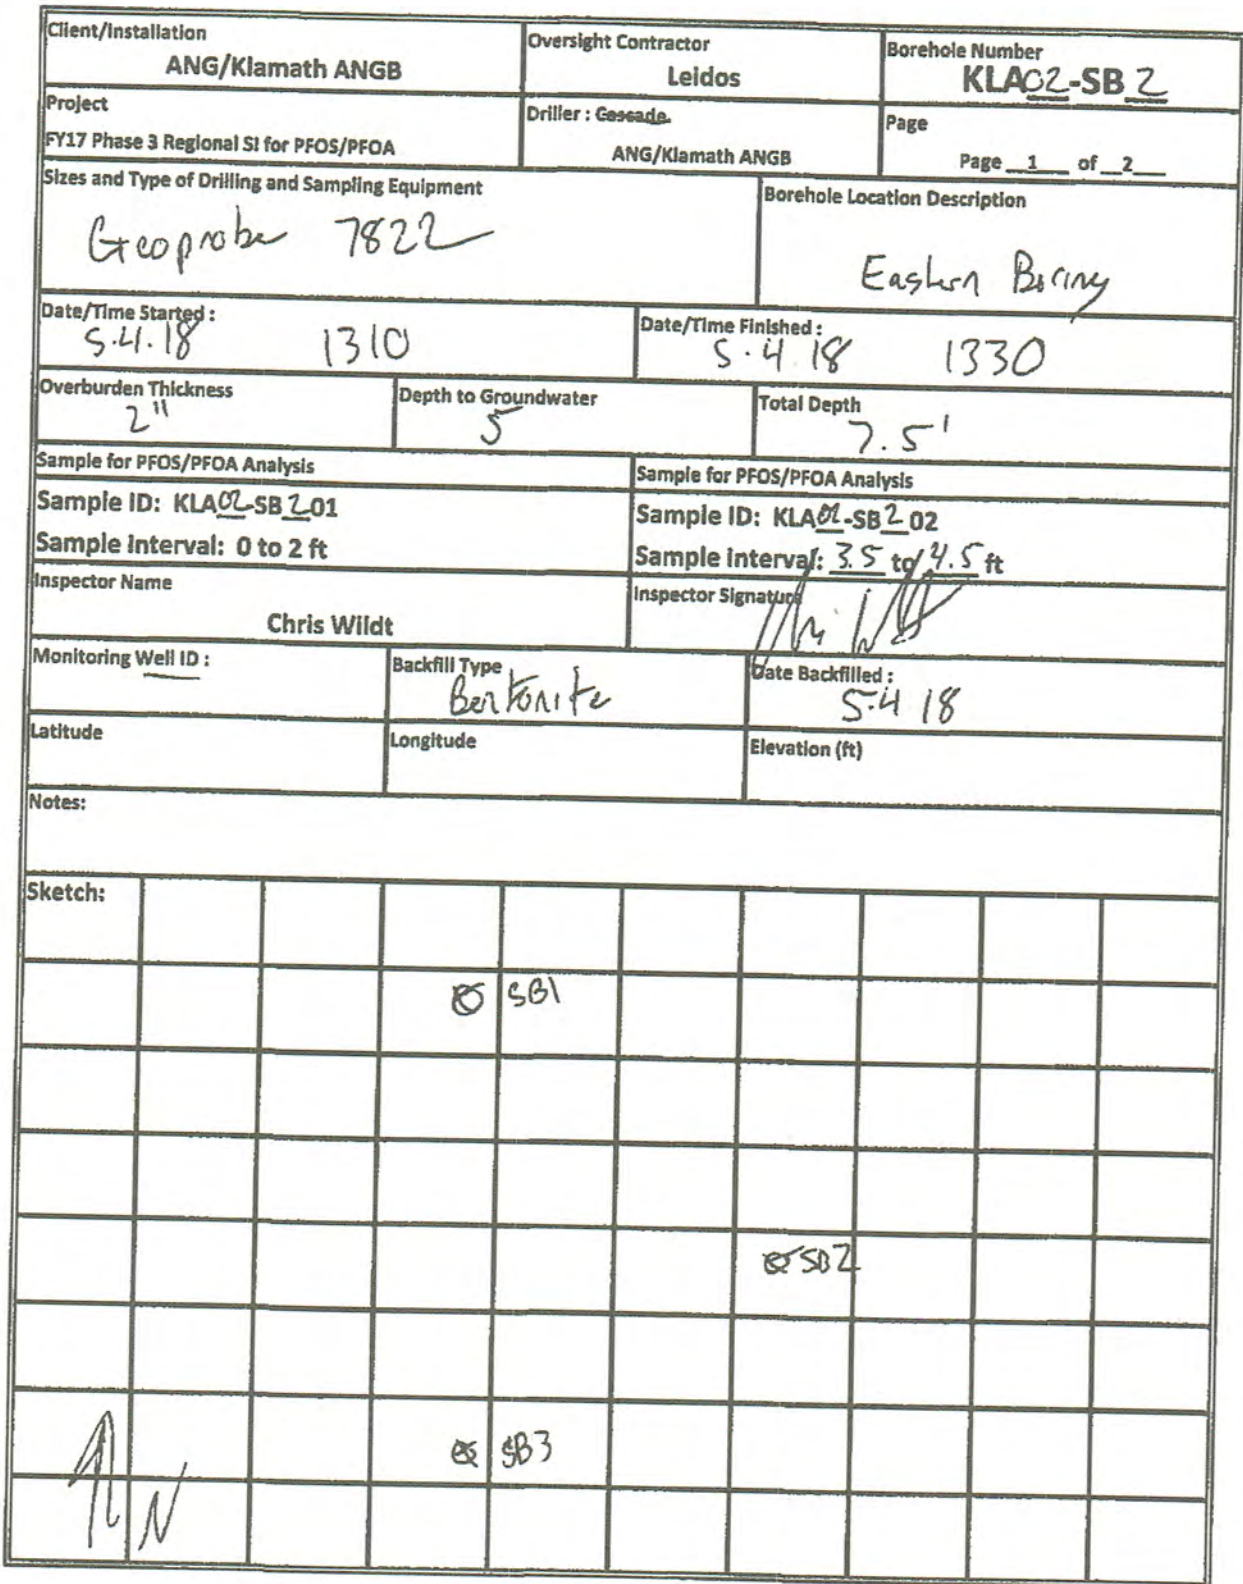 Client/Installation
ANG/Klamath ANGB
Oversight Contractor
Leidos
Borehole Number
KLA02-SB 2
Project
FY17 Phase 3 Regional SI for PFOS/PFOA
Driller : Cascade.
ANG/Klamath ANGB
Page
Page 1 of 2
Sizes and Type of Drilling and Sampling Equipment
Geoprobe 7822
Borehole Location Description
Eastern Boring
Date/Time Started :
5.4.18 1310
Date/Time Finished :
5.4.18 1330
Overburden Thickness
2"
Depth to Groundwater
5
Total Depth
7.5'
Sample for PFOS/PFOA Analysis
Sample ID: KLA02-SB 2 01
Sample Interval: 0 to 2 ft
Sample for PFOS/PFOA Analysis
Sample ID: KLA02-SB 2 02
Sample Interval: 3.5 to 4.5 ft
Inspector Name
Chris Wildt
Inspector Signature
Monitoring Well ID :
Backfill Type
Bentonite
Date Backfilled :
5.4 18
Latitude
Longitude
Elevation (ft)
Notes:
Sketch:
SB1
SB2
SB3
N